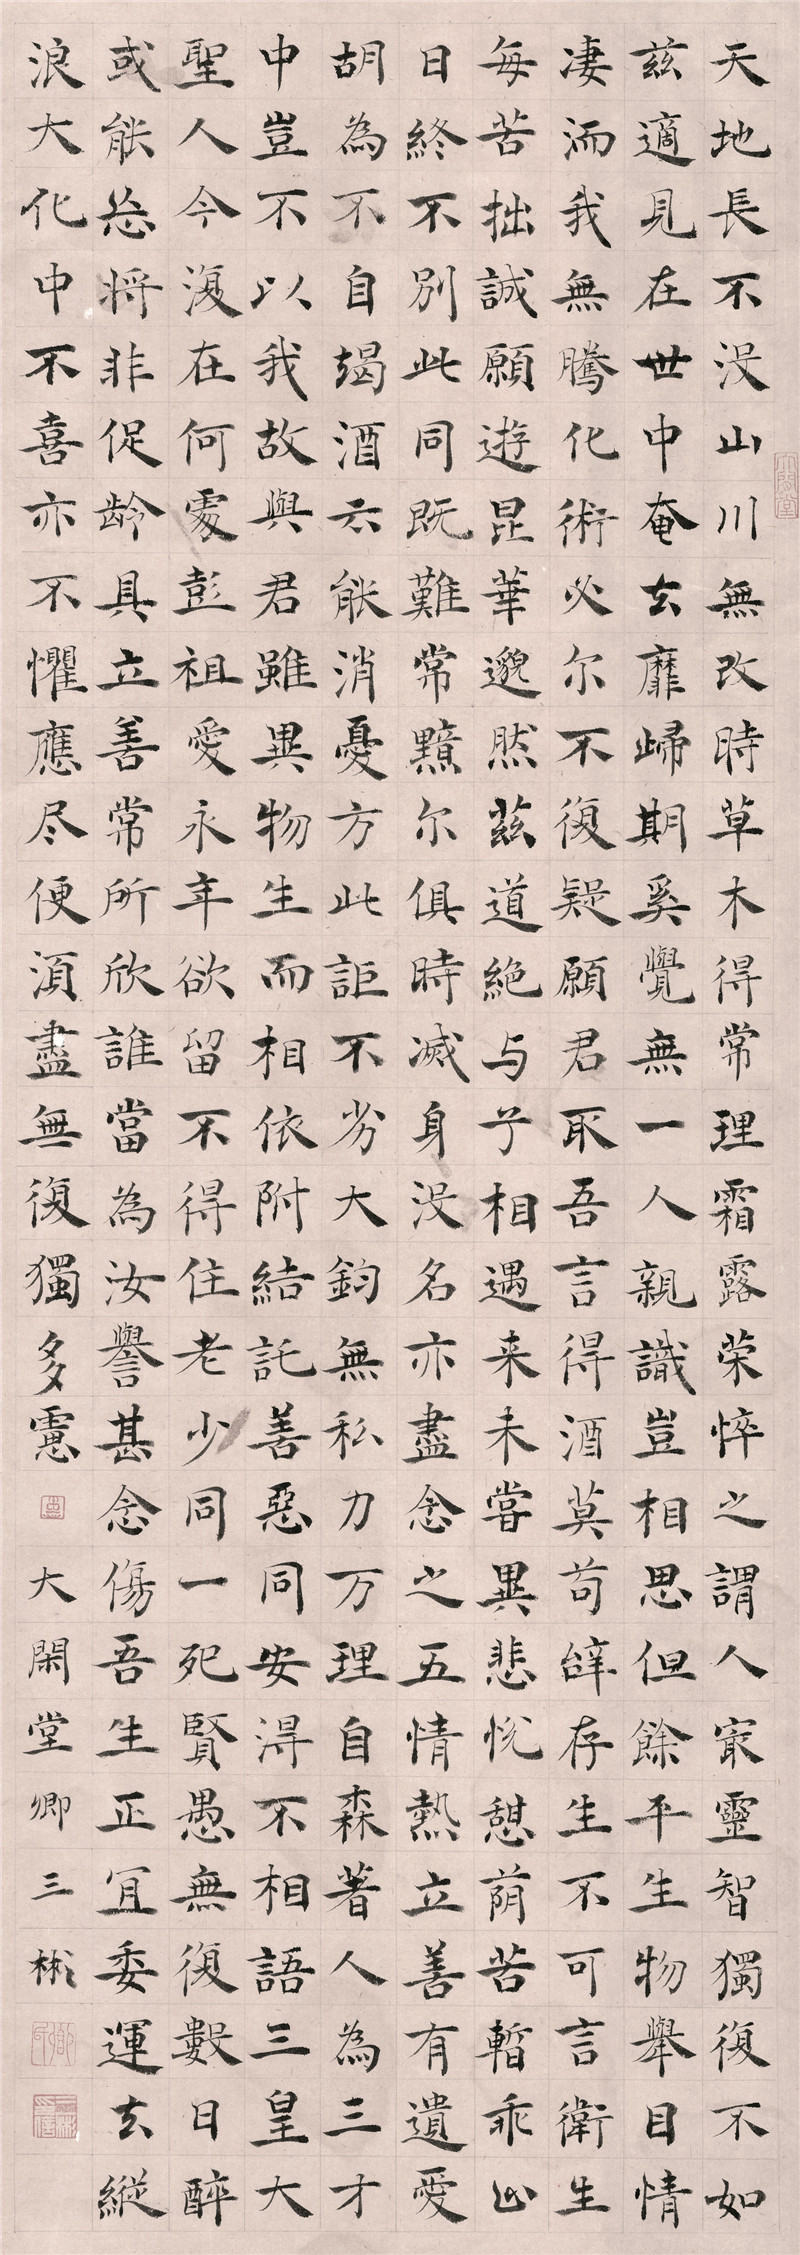 天地長不没山川無改時草木得常理霜露荣悴之謂人㝡靈智獨復不如
兹適見在世中奄去靡歸期奚覺無一人親識豈相思但餘平生物舉目情
凄洏我無騰化術必尔不復疑願君取吾言得酒莫苟辞存生不可言衛生
每苦拙誠願遊昆華邈然兹道絕与子相遇来未嘗異悲悅憩荫若暫乖止
日終不別此同既難常黯尔俱時滅身没名亦盡念之五情熱立善有遺愛
胡為不自竭酒云能消憂方此詎不劣大鈞無私力万理自森著人為三才
中豈不以我故與君雖異物生而相依附結託善惡同安得不相語三皇大
聖人今復在何處彭祖愛永年欲留不得住老少同一死賢愚無復數日醉
或能忘將非促龄具立善常所欣誰當為汝譽甚念傷吾生正宜委運去縱
浪大化中不喜亦不懼應尽便須盡無復獨多慮
大閑堂卿三彬